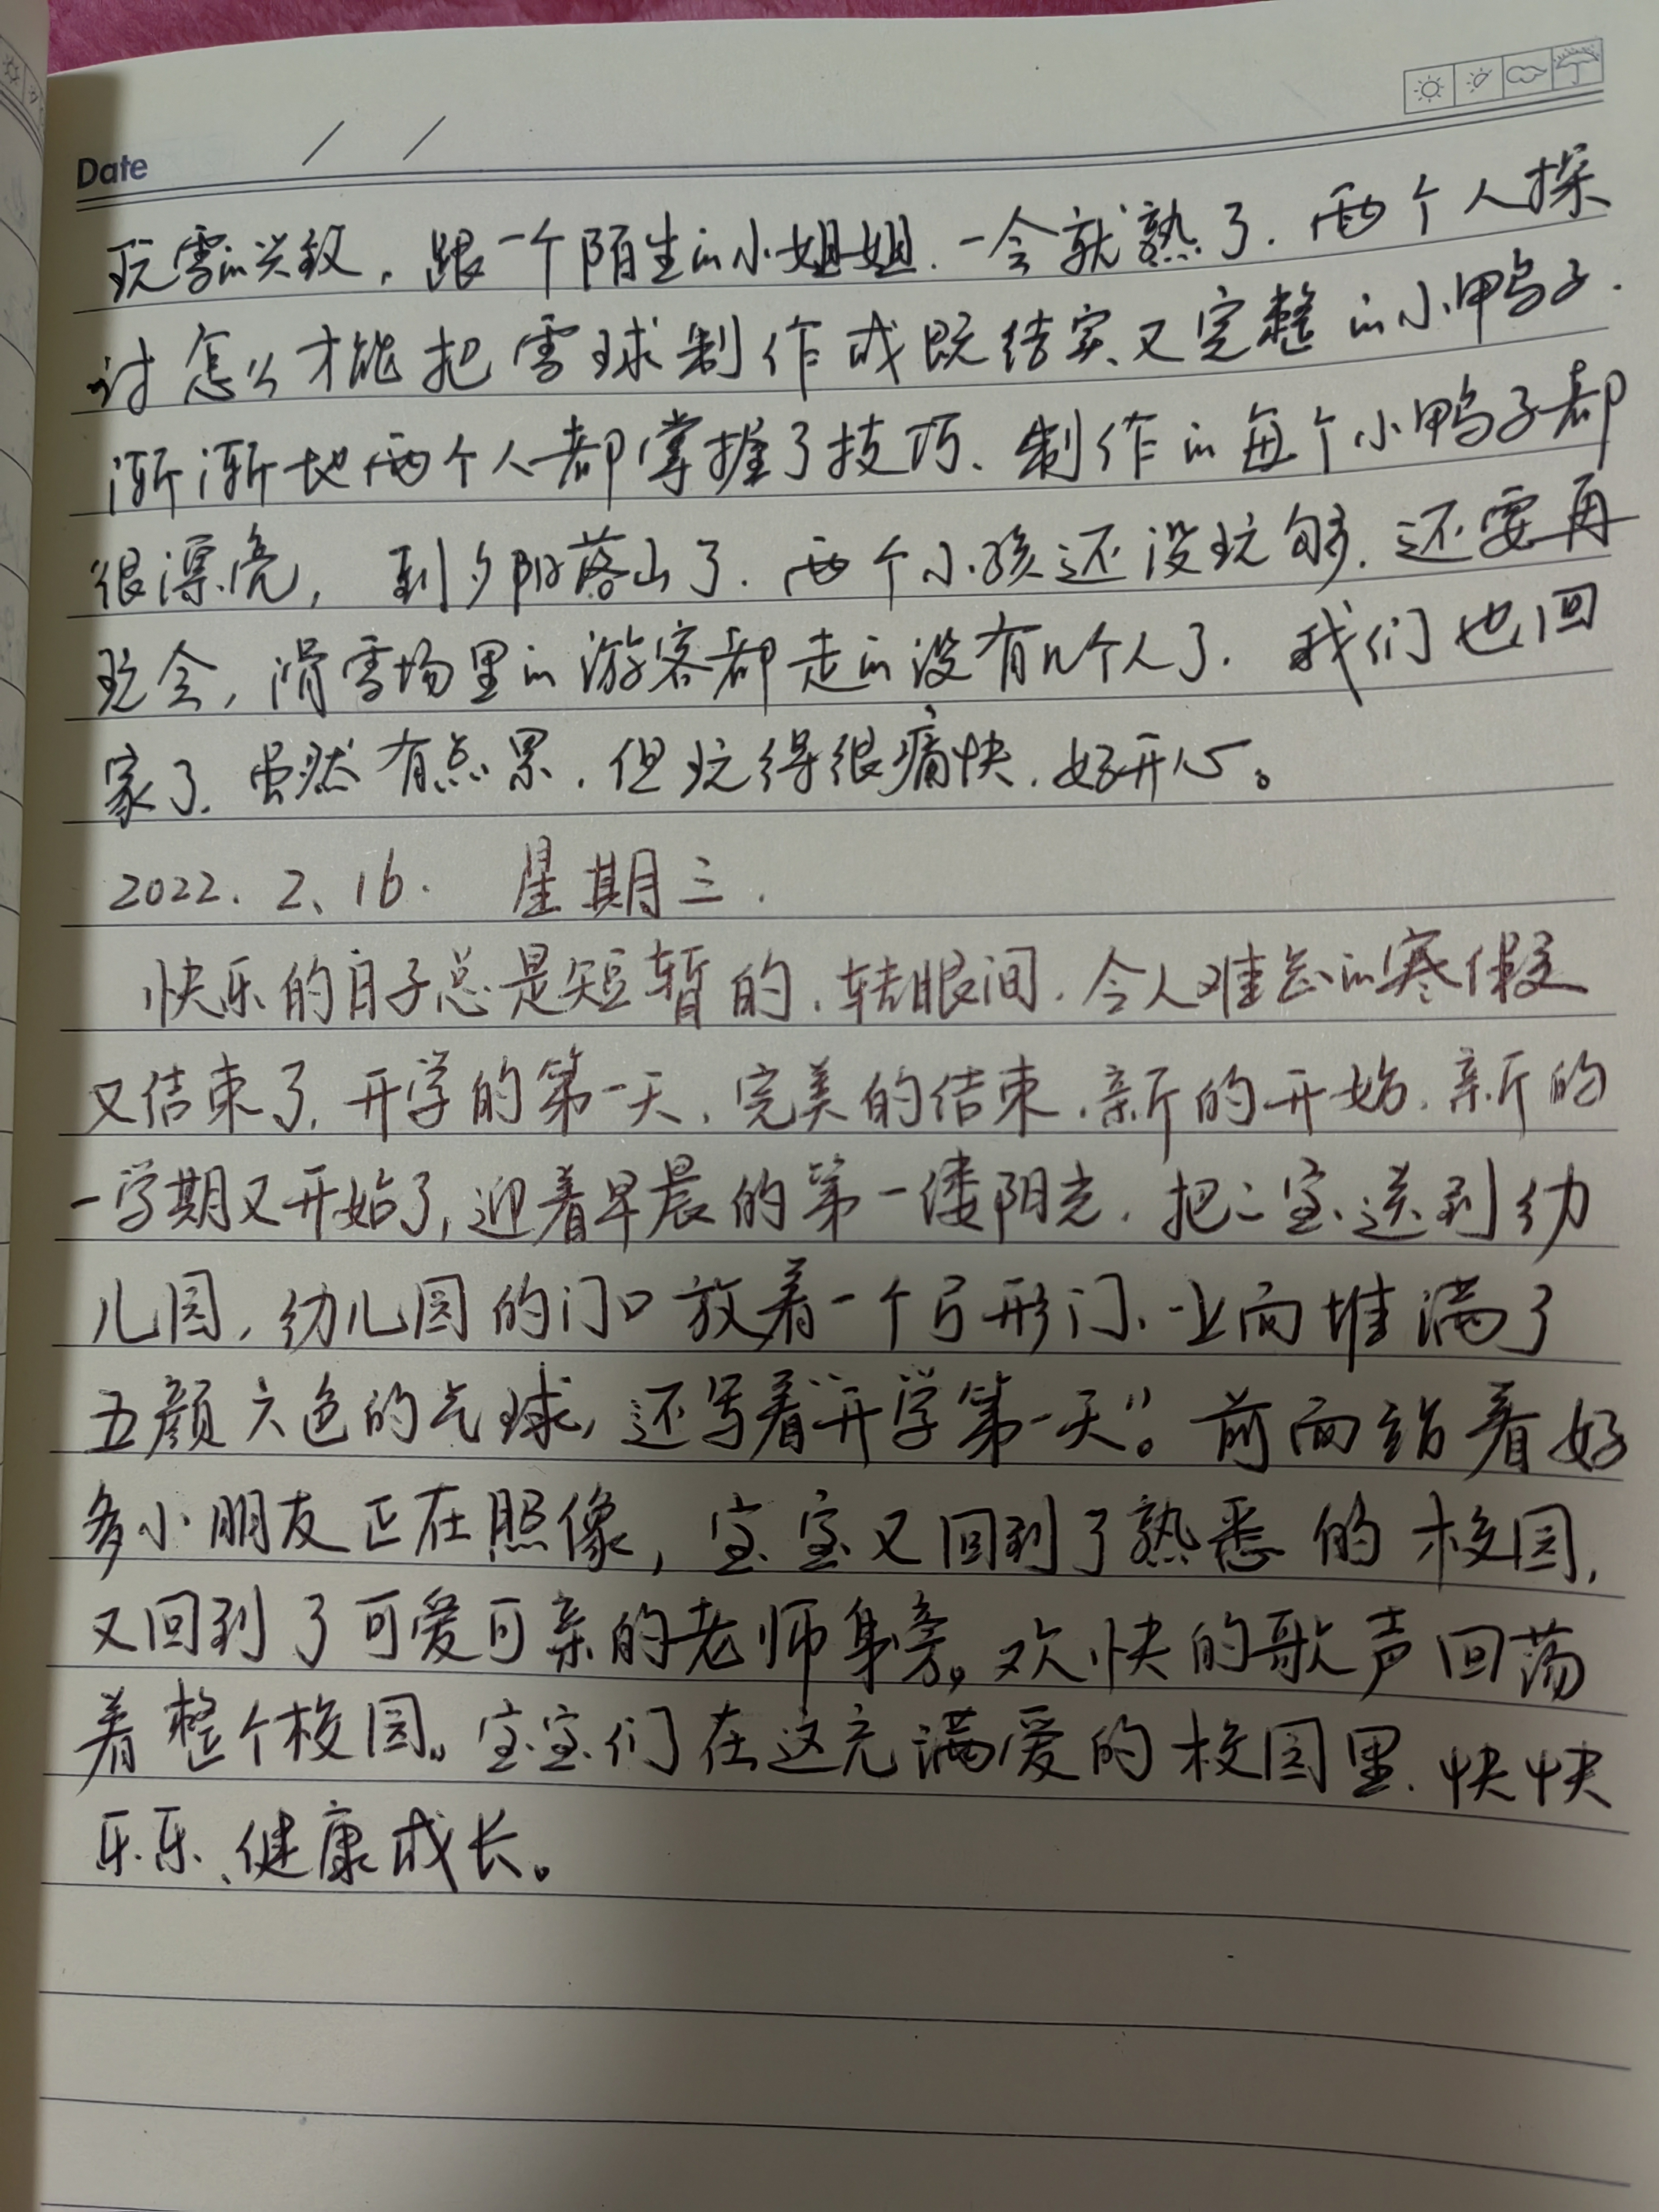 Date / /
玩雪的兴致，跟一个陌生的小姐姐.一会就熟了.两个人探
讨怎么才能把雪球制作成既结实又完整的小鸭子.
渐渐地两个人都掌握了技巧、制作的每个小鸭子都
很漂亮，到夕阳落山了.两个小孩还没玩够.还要再
玩会，滑雪场里的游客都走的没有几个人了.我们也回
家了.虽然有点累.但玩得很痛快.好开心。
2022.2、16. 星期三.
快乐的日子总是短暂的.转眼间.令人难忘的寒假又
又结束了.开学的第一天.完美的结束.新的开始.新的
一学期又开始了,迎着早晨的第一缕阳光.把二宝送到幼
儿园,幼儿园的门口放着一个弓形门、上面堆满了
五颜六色的气球,还写着"开学第一天"。前面站着好
多小朋友正在照像，宝宝又回到了熟悉的校园,
又回到了可爱可亲的老师身旁。欢快的歌声回荡
着整个校园。宝宝们在这充满爱的校园里.快快
乐乐、健康成长。